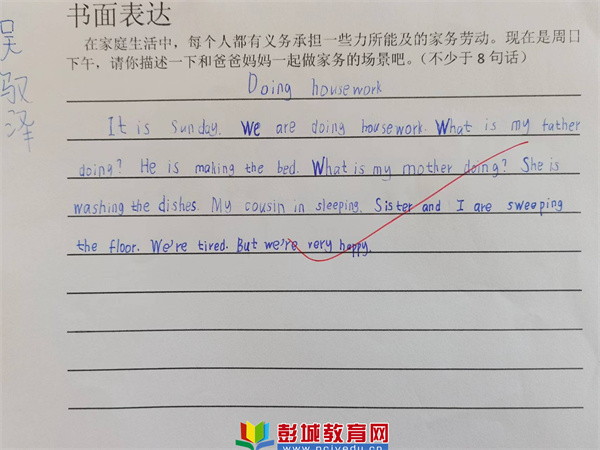 吴驭泽
书面表达
在家庭生活中，每个人都有义务承担一些力所能及的家务劳动。现在是周日
下午，请你描述一下和爸爸妈妈一起做家务的场景吧。（不少于8句话）
Doing housework
It is Sunday. We are doing housework. What is my father
doing? He is making the bed. What is my mother doing? She is
washing the dishes. My cousin in sleeping. Sister and I are sweeping
the floor. We're tired. But we're very happy.
彭城教育网
www.pcjyedu.cn